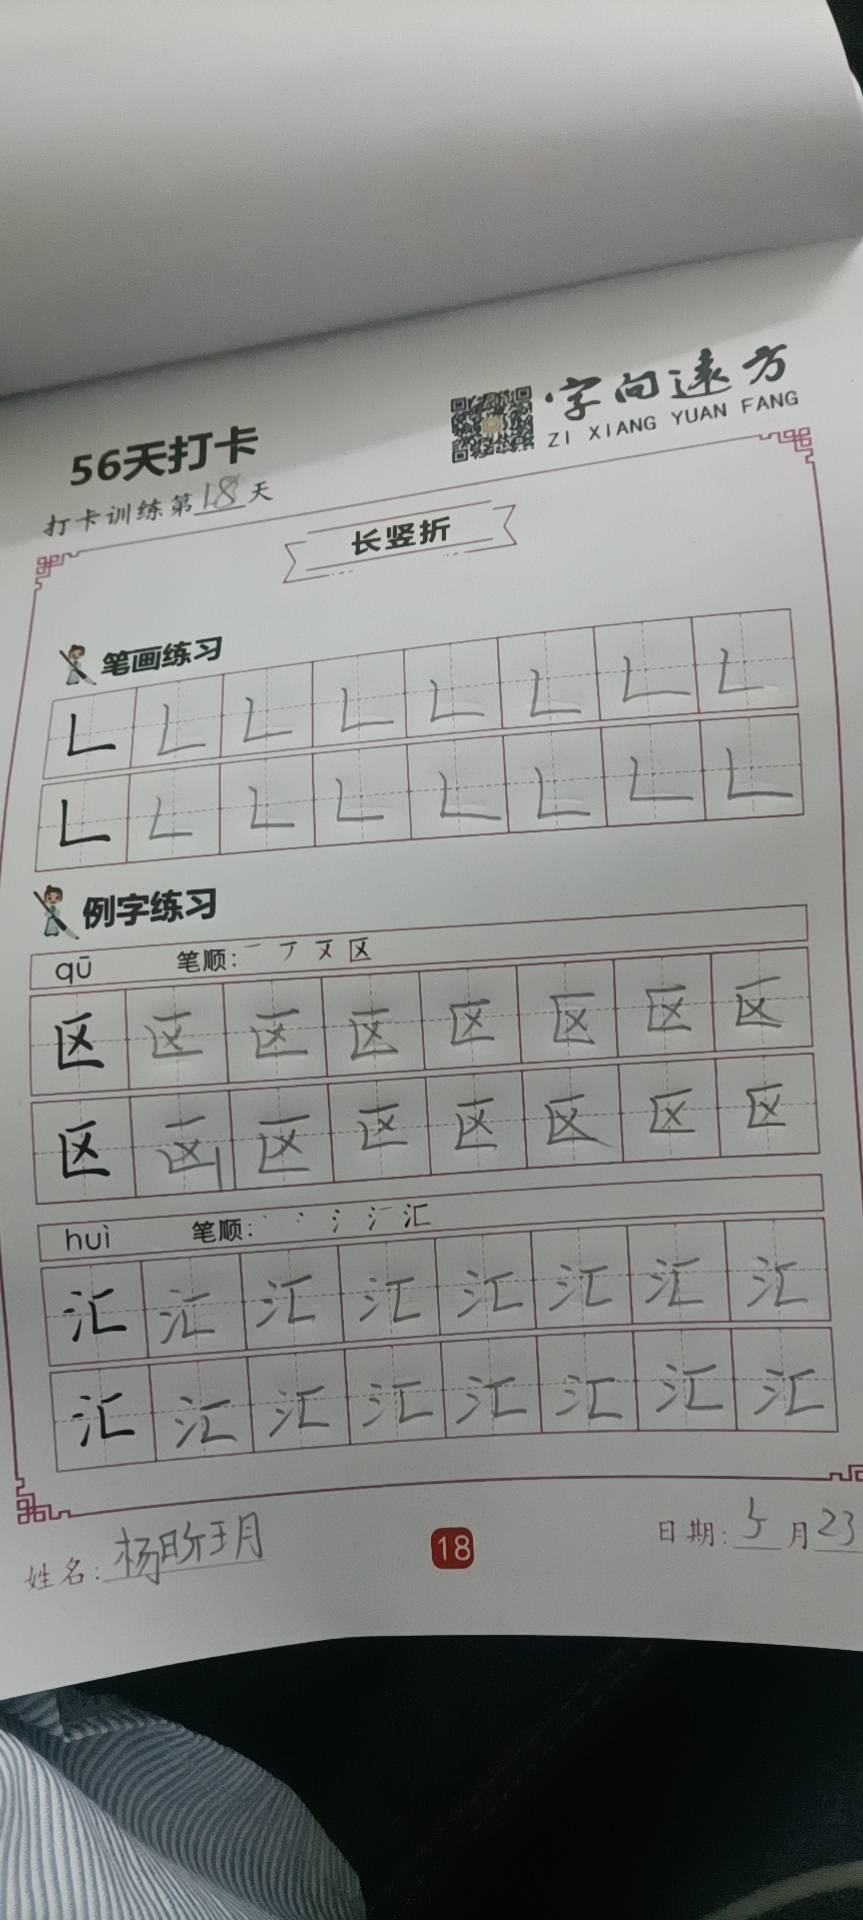 字向远方
ZI XIANG YUAN FANG
56天打卡
打卡训练第18天
长竖折
笔画练习
𠃊 𠃊 𠃊 𠃊 𠃊 𠃊 𠃊 𠃊
𠃊 𠃊 𠃊 𠃊 𠃊 𠃊 𠃊 𠃊
例字练习
qū 笔顺: 一 丆 区
区 区 区 区 区 区 区 区
区 区 区 区 区 区 区 区
huì 笔顺: 丶 冫 氵 汇
汇 汇 汇 汇 汇 汇 汇 汇
汇 汇 汇 汇 汇 汇 汇 汇
姓名: 杨昕玥
18
日期: 5月23